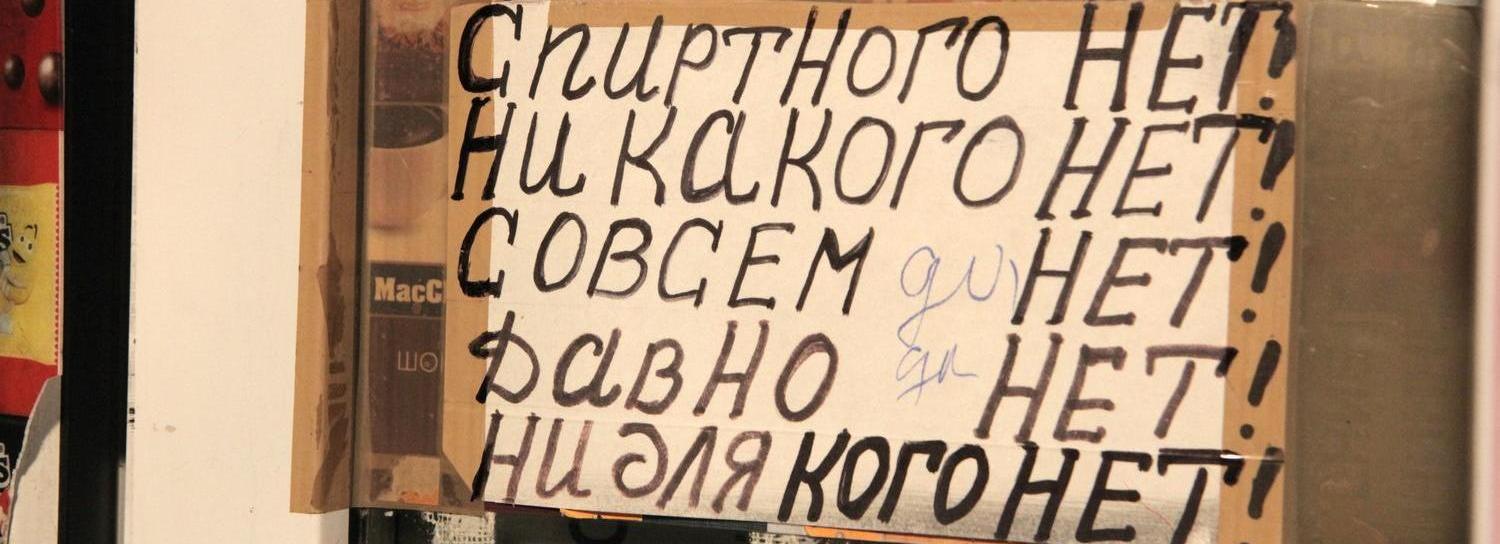 Спиртного НЕТ!
Никакого НЕТ!
СОВСЕМ НЕТ!
Давно НЕТ!
Ни для кого НЕТ!
MacC
ШО